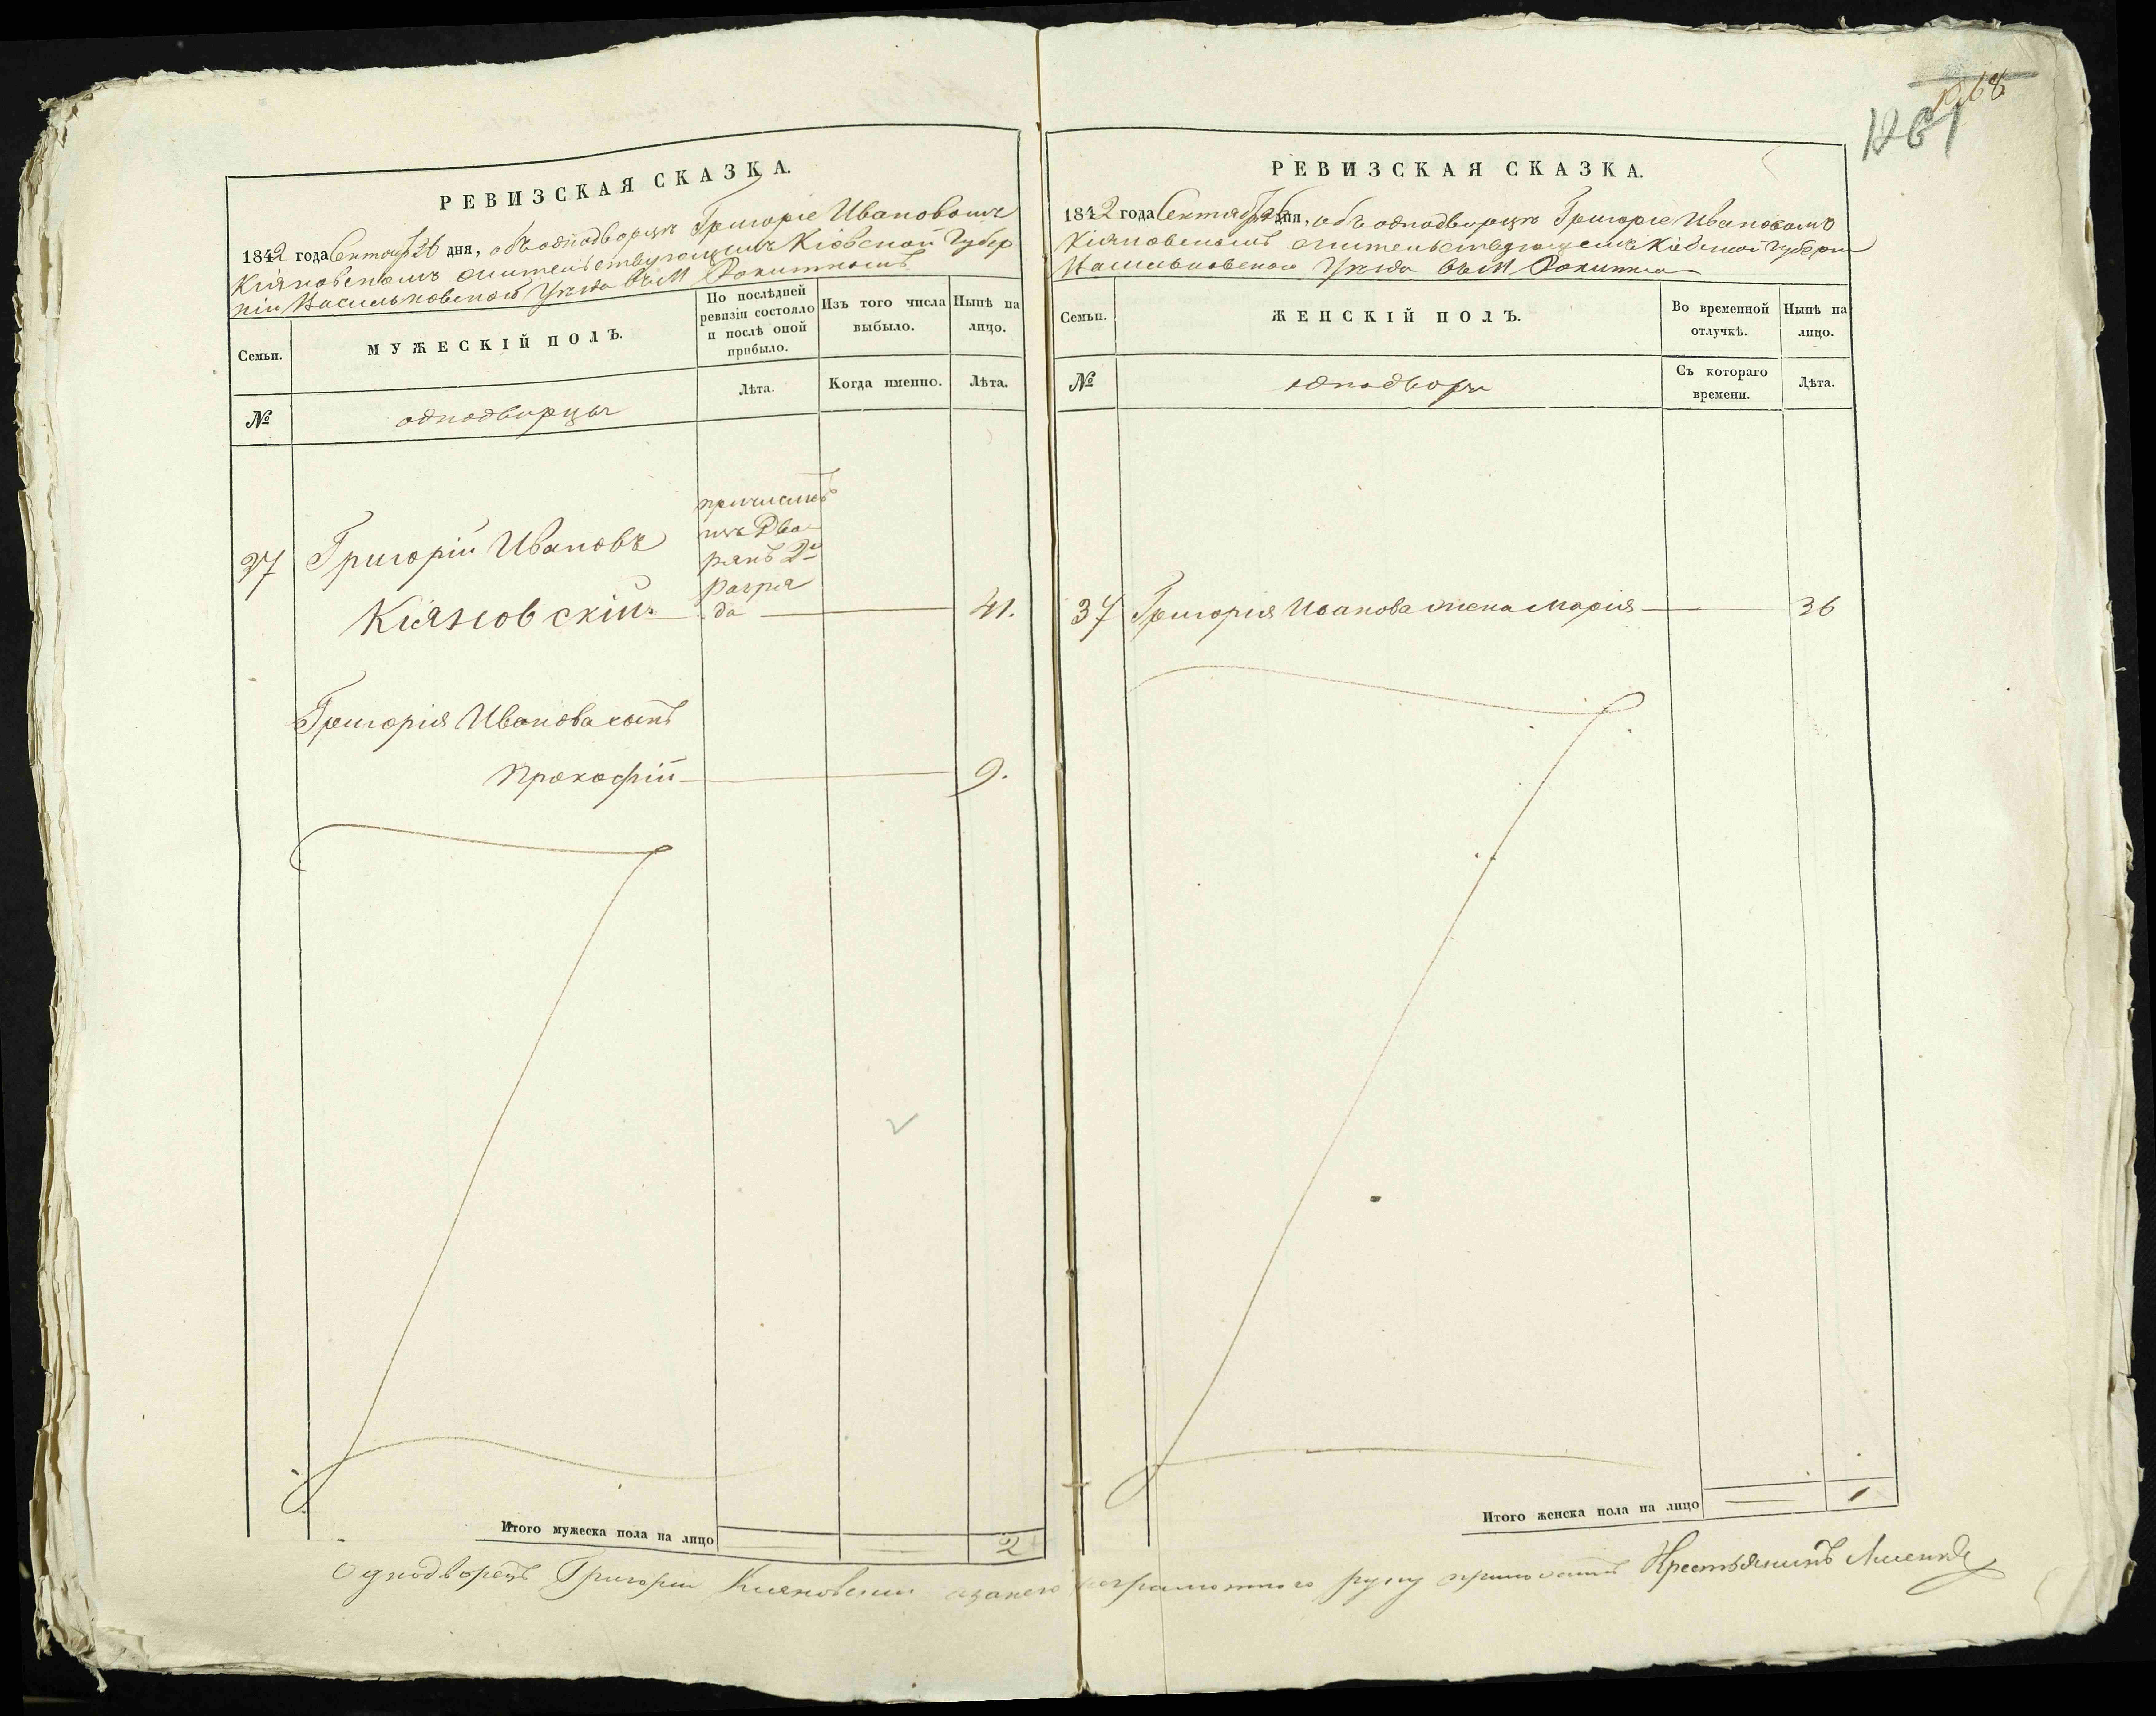 1068
1261
РЕВИЗСКАЯ СКАЗКА.
1842 года Сентяб 26 дня, объ однодворцѣ Григоріе Ивановомъ
Кіяновскомъ жительствующемъ Кіевской Губер
ніи Васильковского Уѣзда въ М Рокитномъ
Семьи.
МУЖЕСКІЙ ПОЛЪ.
По послѣдней
ревизіи состояло
и послѣ оной
прибыло.
Изъ того числа
выбыло.
Нынѣ на
лицо.
№
однодворцы
Лѣта.
Когда именно.
Лѣта.
37
Григорій Ивановъ
Кіяновскій.
причисленъ
изъ Дво-
рянъ 2го
Разря
да
41.
Григорія Иванова сынъ
Прокофій
9.
Итого мужеска пола на лицо
2
РЕВИЗСКАЯ СКАЗКА.
1842 года Сентяб 26 дня, объ однодворцѣ Григоріе Ивановомъ
Кіяновскомъ жительствующемъ Кіевской Губерни
Васильковского Уѣзда въ М Рокитно
Семьи.
ЖЕНСКІЙ ПОЛЪ.
Во временной
отлучкѣ.
Нынѣ на
лицо.
№
однодворц
Съ котораго
времени.
Лѣта.
37
Григорія Иванова жена Марія
36
Итого женска пола на лицо
1
Однодворецъ Григорій Кияновский азанего неграмотного руку приложилъ Крестьянинъ